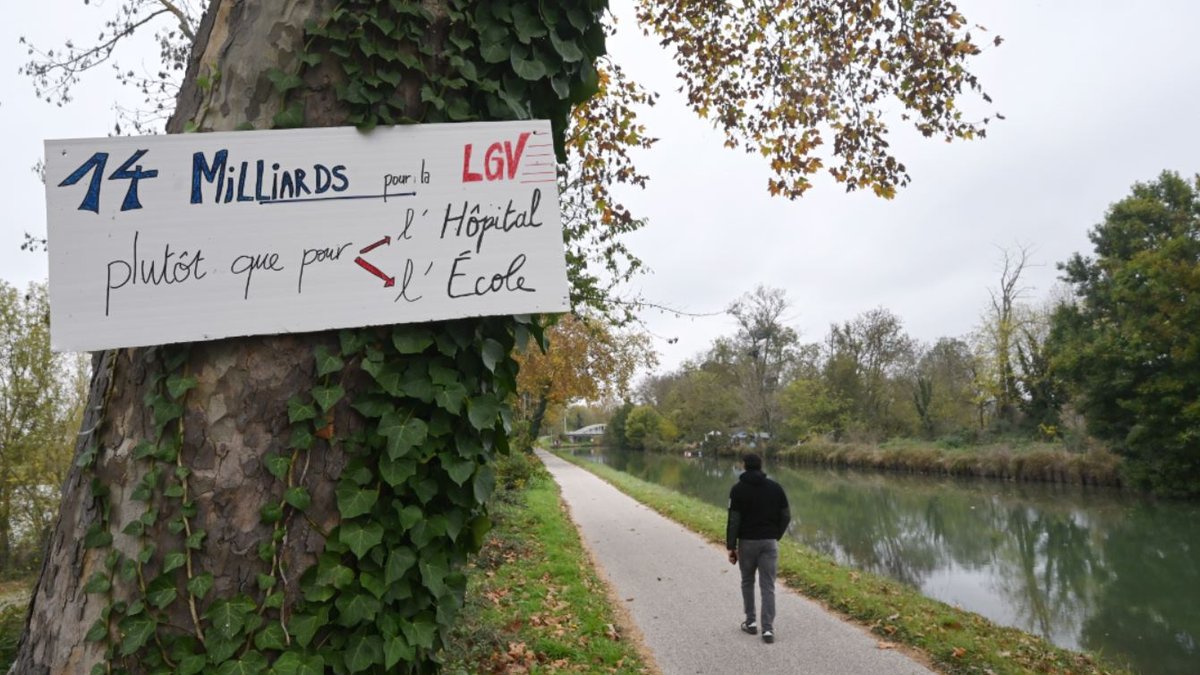 14 MILLIARDS pour la LGV
plutôt que pour l' Hôpital
l' École